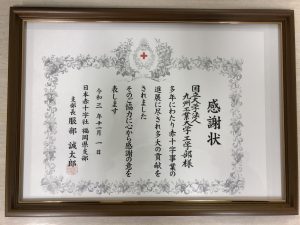 感謝状
国立大学法人
九州工業大学工学部様
多年にわたり赤十字事業の
進展に尽され多大の貢献を
されました
そのご協力に心から感謝の意を
表します
令和三年十一月一日
日本赤十字社福岡県支部
支部長服部誠太郎